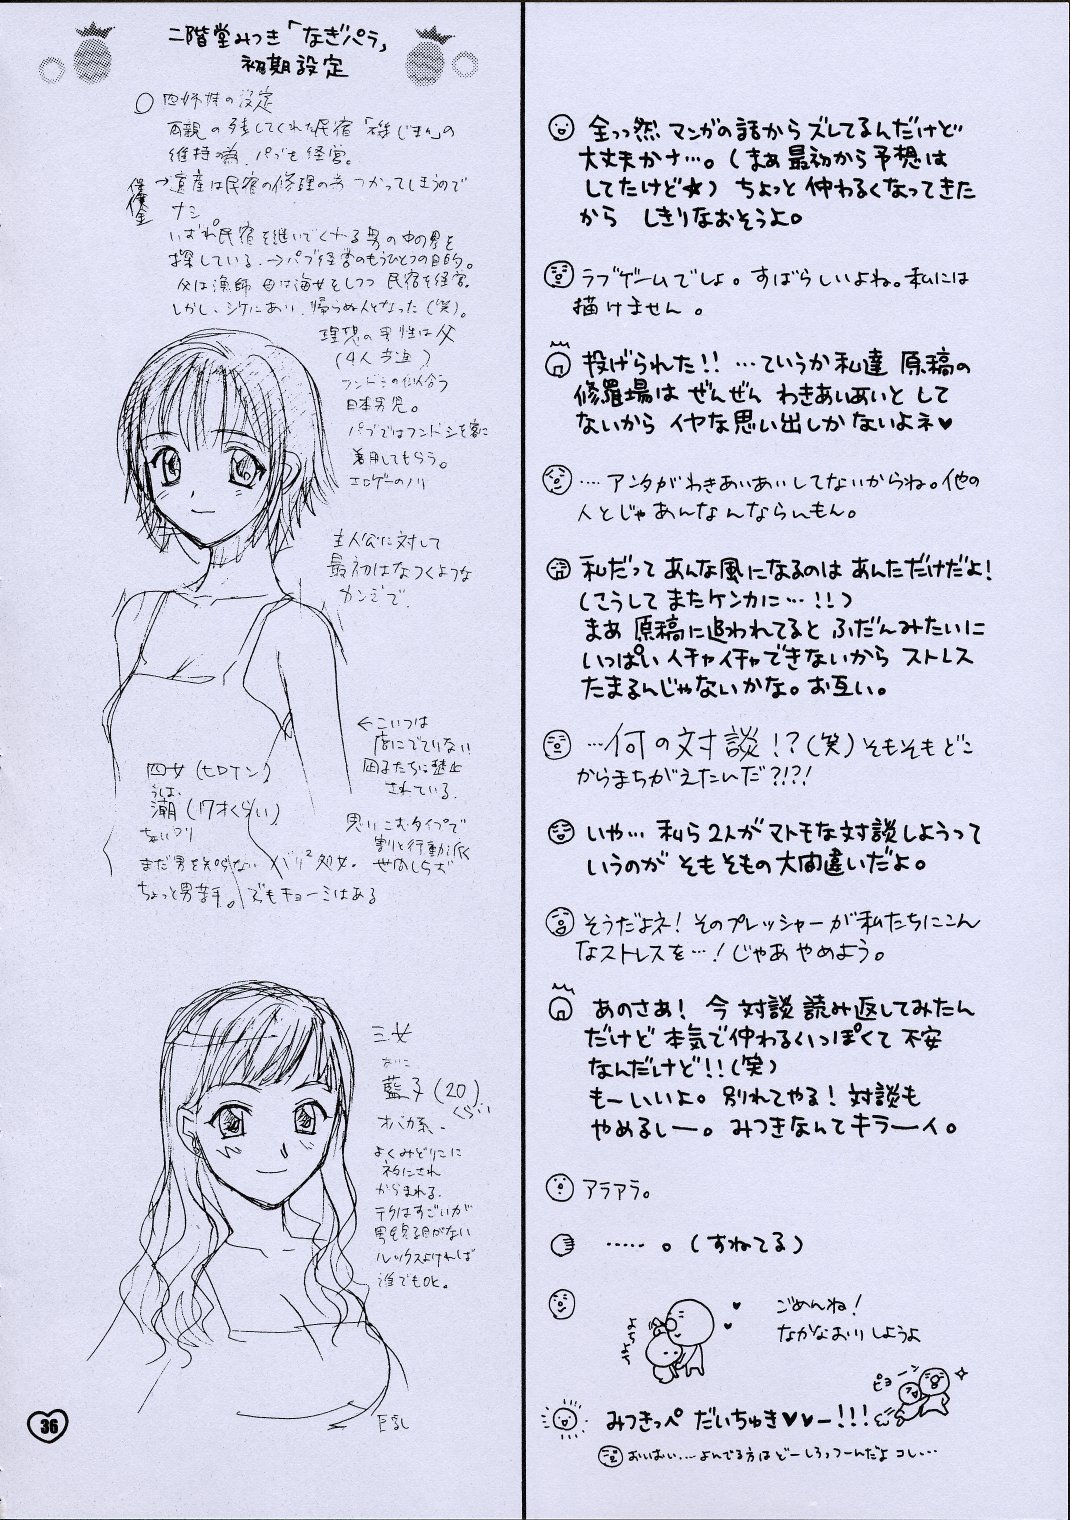 二階堂みつき「なぎパラ」
初期設定
○四姉妹の設定
両親の残してくれた民宿「磯じまん」の
維持の為、パブを経営。
→遺産は民宿の修理の為つかってしまうので
ナシ
いずれ民宿を継いでくれる男の中の男を
探している。→パブ経営のもうひとつの目的。
父は漁師 母は海女をしつつ 民宿を経営。
しかし、シケにあい、帰らぬ人となった(笑)。
理想の男性は父
(4人共通)
フンドシの似合う
日本男児。
パブではフンドシを客に
着用してもらう。
エロゲーのノリ
主人公に対して
最初はなつくような
カンジで。
←こいつは
店にでていない
四女(ヒロイン)
うしお
潮(17才くらい)
思いこむタイプで
割と行動派
世間しらず
まだ男を知らない バリ²処女。
ちょっと男苦手。でもキョーミはある
三女
あいこ
藍子(20)
くらい
オバカ系。
よくみどりこに
ネタにされ
からまれる。
テクはすごいが
男を見る目がない
ルックスよければ
誰でもOK。
巨乳
36
全っっ然 マンガの話から ズレてるんだけど
大丈夫かナ…。(まぁ最初から予想は
してたけど☆) ちょっと仲わるくなってきた
から しきりなおそうよ。
ラブゲームでしょ。すばらしいよね。私には
描けません。
投げられた!! …ていうか私達 原稿の
修羅場は ぜんぜん わきあいあいと して
ないから イヤな思い出しか ないよネ♥
…アンタがわきあいあいしてないからね。他の
人とじゃあんなんならんもん。
私だって あんな風になるのは あんただけだよ!
(こうして またケンカに…!!)
まあ 原稿に追われてると ふだんみたいに
いっぱい イチャイチャできないから ストレス
たまるんじゃないかな。お互い。
…何の対談!?(笑)そもそもどこ
からまちがえたんだ?!?!
いや… 私ら2人がマトモな対談しようって
いうのが そもそもの大間違いだよ。
そうだよネ! そのプレッシャーが私たちにこん
なストレスを…! じゃあ やめよう。
あのさあ! 今 対談 読み返してみたん
だけど 本気で仲わるくっぽくて 不安
なんだけど!!(笑)
もーいいよ。別れてやる! 対談も
やめるしー。みつきなんてキラーイ。
アラアラ。
……。(すねてる)
ごめんね!
なかなおりしようよ
よちよち
ピョーン
みつきっぺ だいちゅき♥♥ー!!!
おいおい…よんでる方はどーしろっつーんだよ コレ…